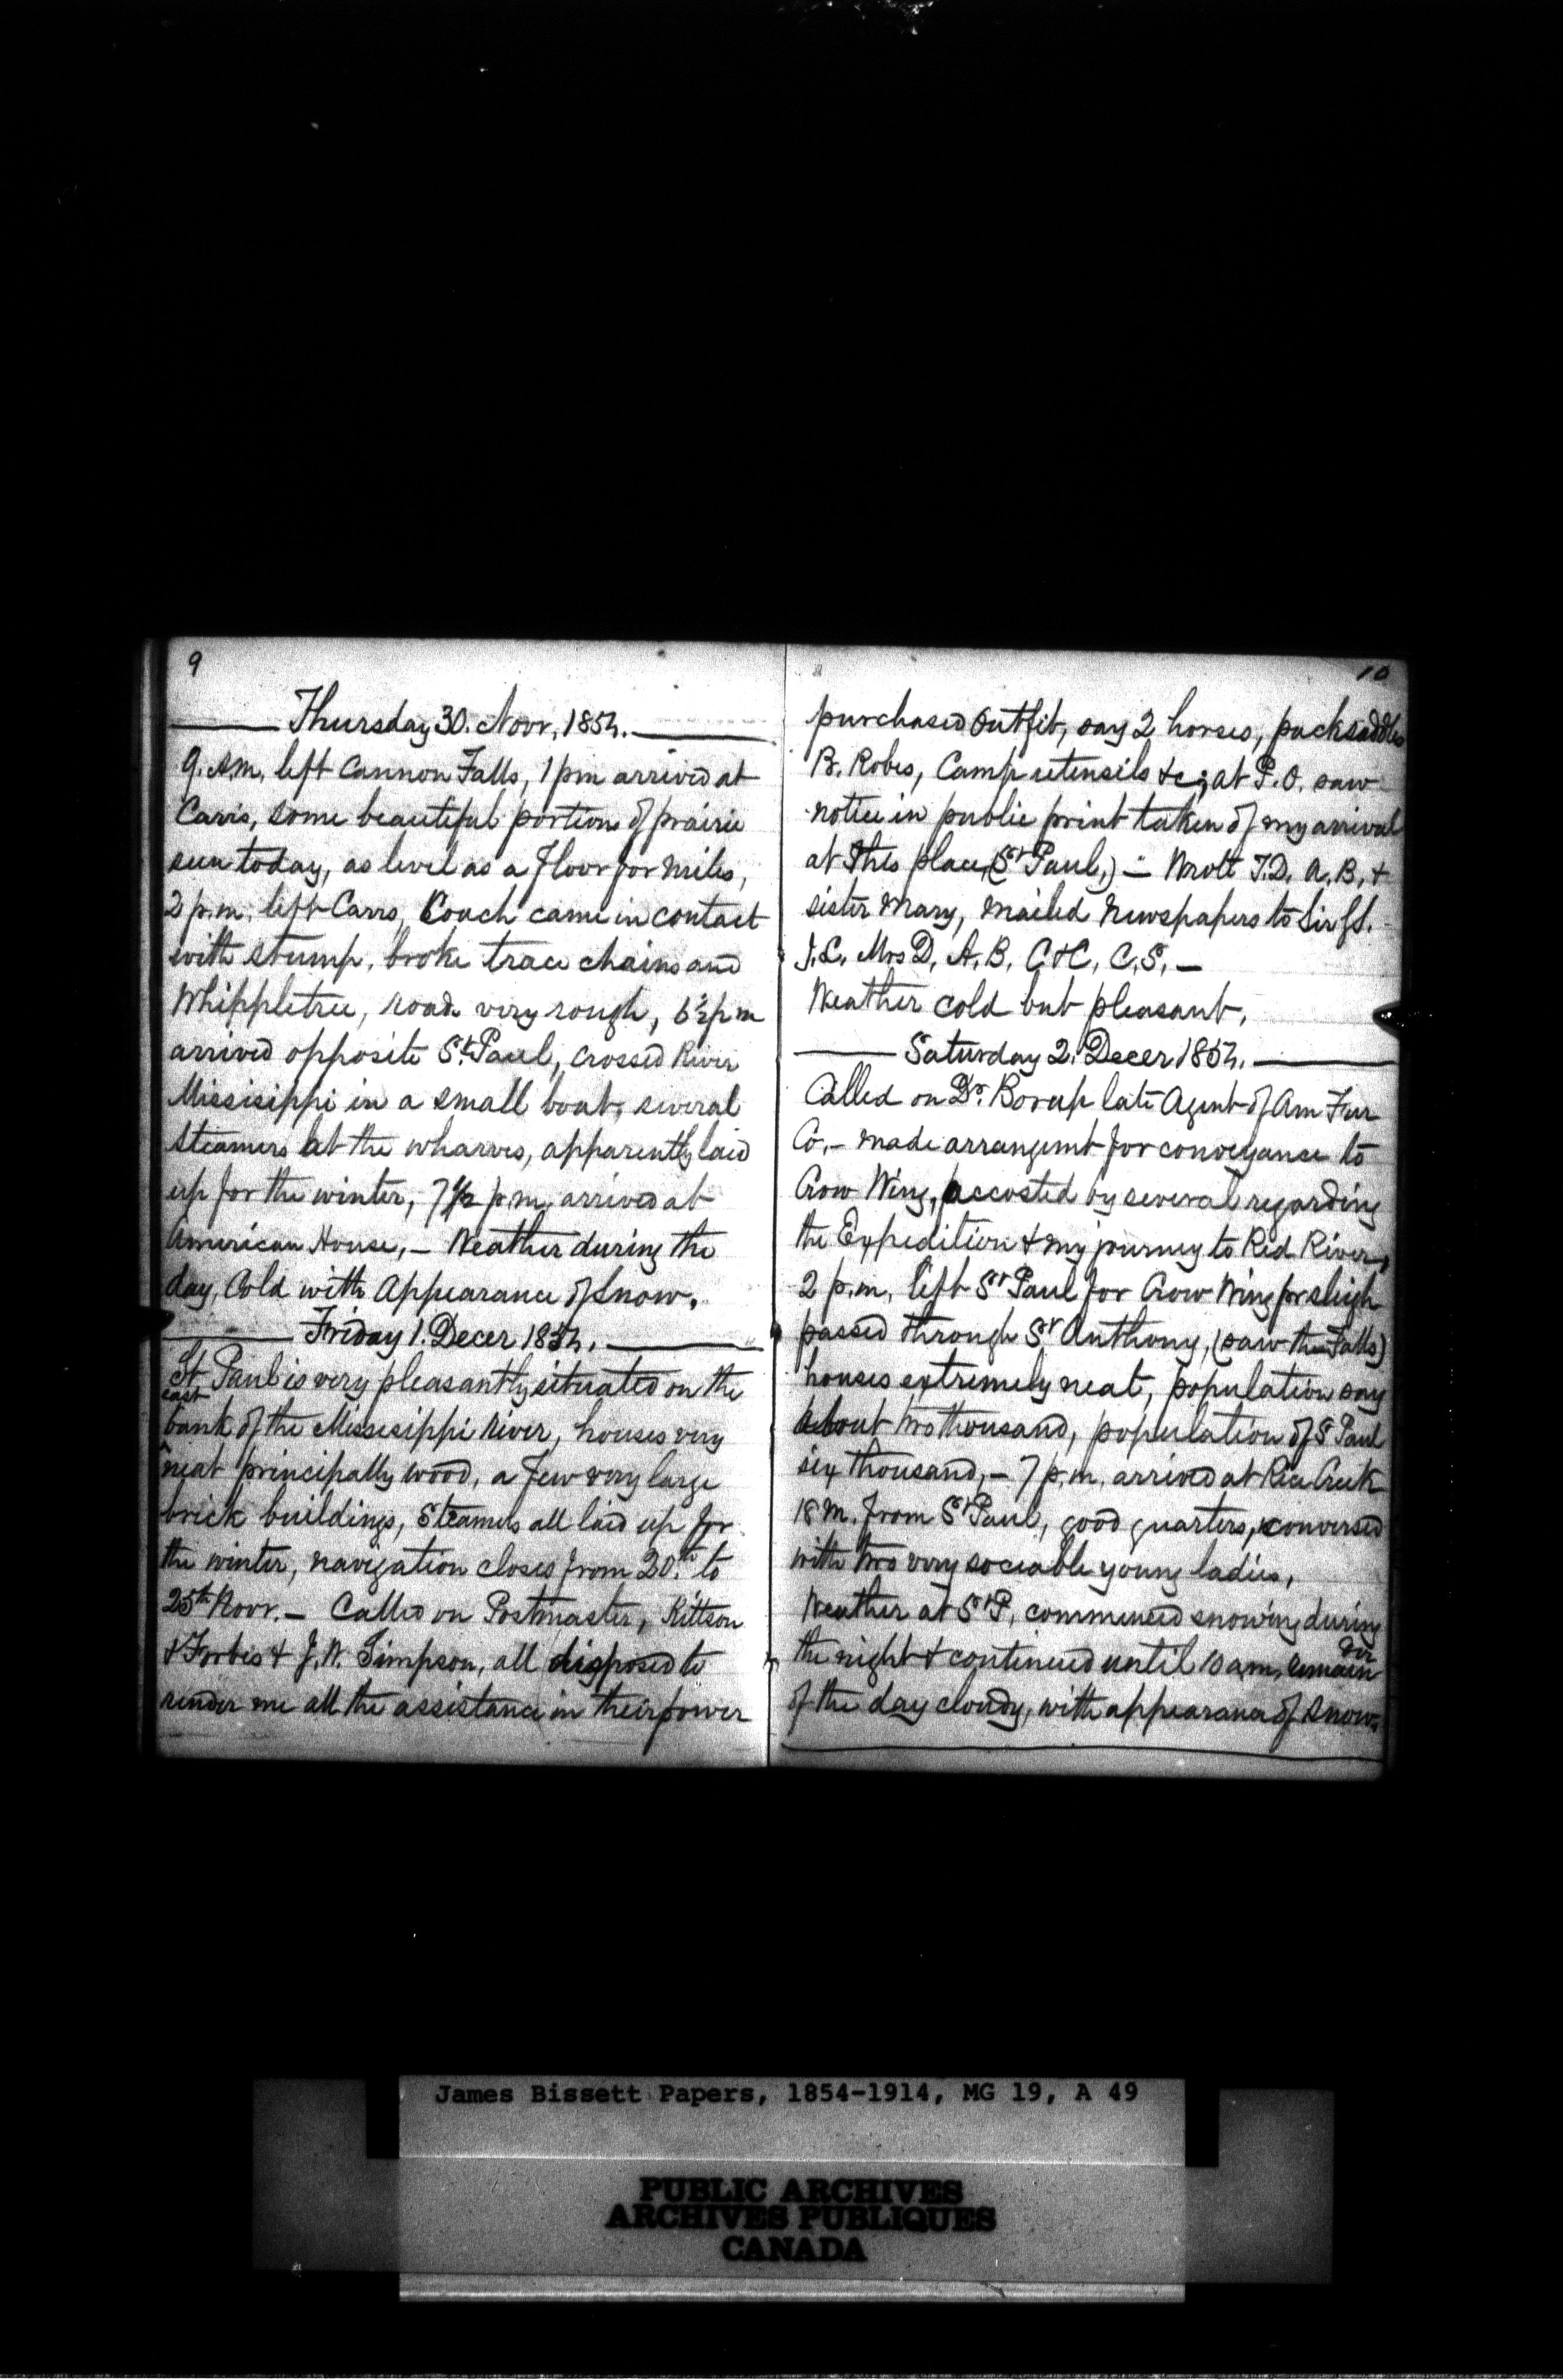 9
Thursday 30. Novr, 1854.
9. Am, left Cannon Falls, 1 pm arrived at
Carrs, some beautiful portions of prairie
seen today, as level as a floor for miles,
2 p.m. left Carrs, Coach came in contact
with stump, broke trace chains and
Whippletree, road very rough, 6½ pm
arrived opposite St. Paul, crossed River
Missisippi in a small boat, several
Steamers at the wharves, apparently laid
up for the winter, 7½ p.m, arrived at
American House, – Weather during the
day, Cold with Appearance of Snow.
Friday 1. Decer 1854.
St Paul is very pleasantly situated on the
east
bank of the Missisippi River, houses very
neat principally wood, a few very large
brick buildings, Steamers all laid up for
the winter, navigation closes from 20th to
25th Novr. – Called on Postmaster, Kittson
& Forbes & J. W. Simpson, all disposed to
render me all the assistance in their power
10
purchased Outfit, say 2 horses, packsaddles
B. Robes, Camp utensils &c; at P.O. saw
notice in public print taken of my arrival
at this place, (St Paul,) – Wrote T.D. A.B. &
sister Mary, mailed Newspapers to Sir G.S.
J.L. Mrs D, A.B. C&C, C.S. –
Weather cold but pleasant.
Saturday 2. Decer 1854.
Called on Dr. Borup late Agent of Am Fur
Co, – made arrangemt for conveyance to
Crow Wing, accosted by several regarding
the Expedition & my journey to Red River,
2 p.m. left St Paul for Crow Wing pr sleigh
passed through St Anthony, (saw the Falls)
houses extremely neat, population say
about two thousand, population of St Paul
six thousand, – 7 p.m. arrived at Rice Creek
18 M. from St Paul, good quarters, conversed
with two very sociable young ladies,
Weather at St P, commenced snowing during
the night & continued until 10 am, remain
der
of the day cloudy, with appearance of snow.
James Bissett Papers, 1854-1914, MG 19, A 49
PUBLIC ARCHIVES
ARCHIVES PUBLIQUES
CANADA